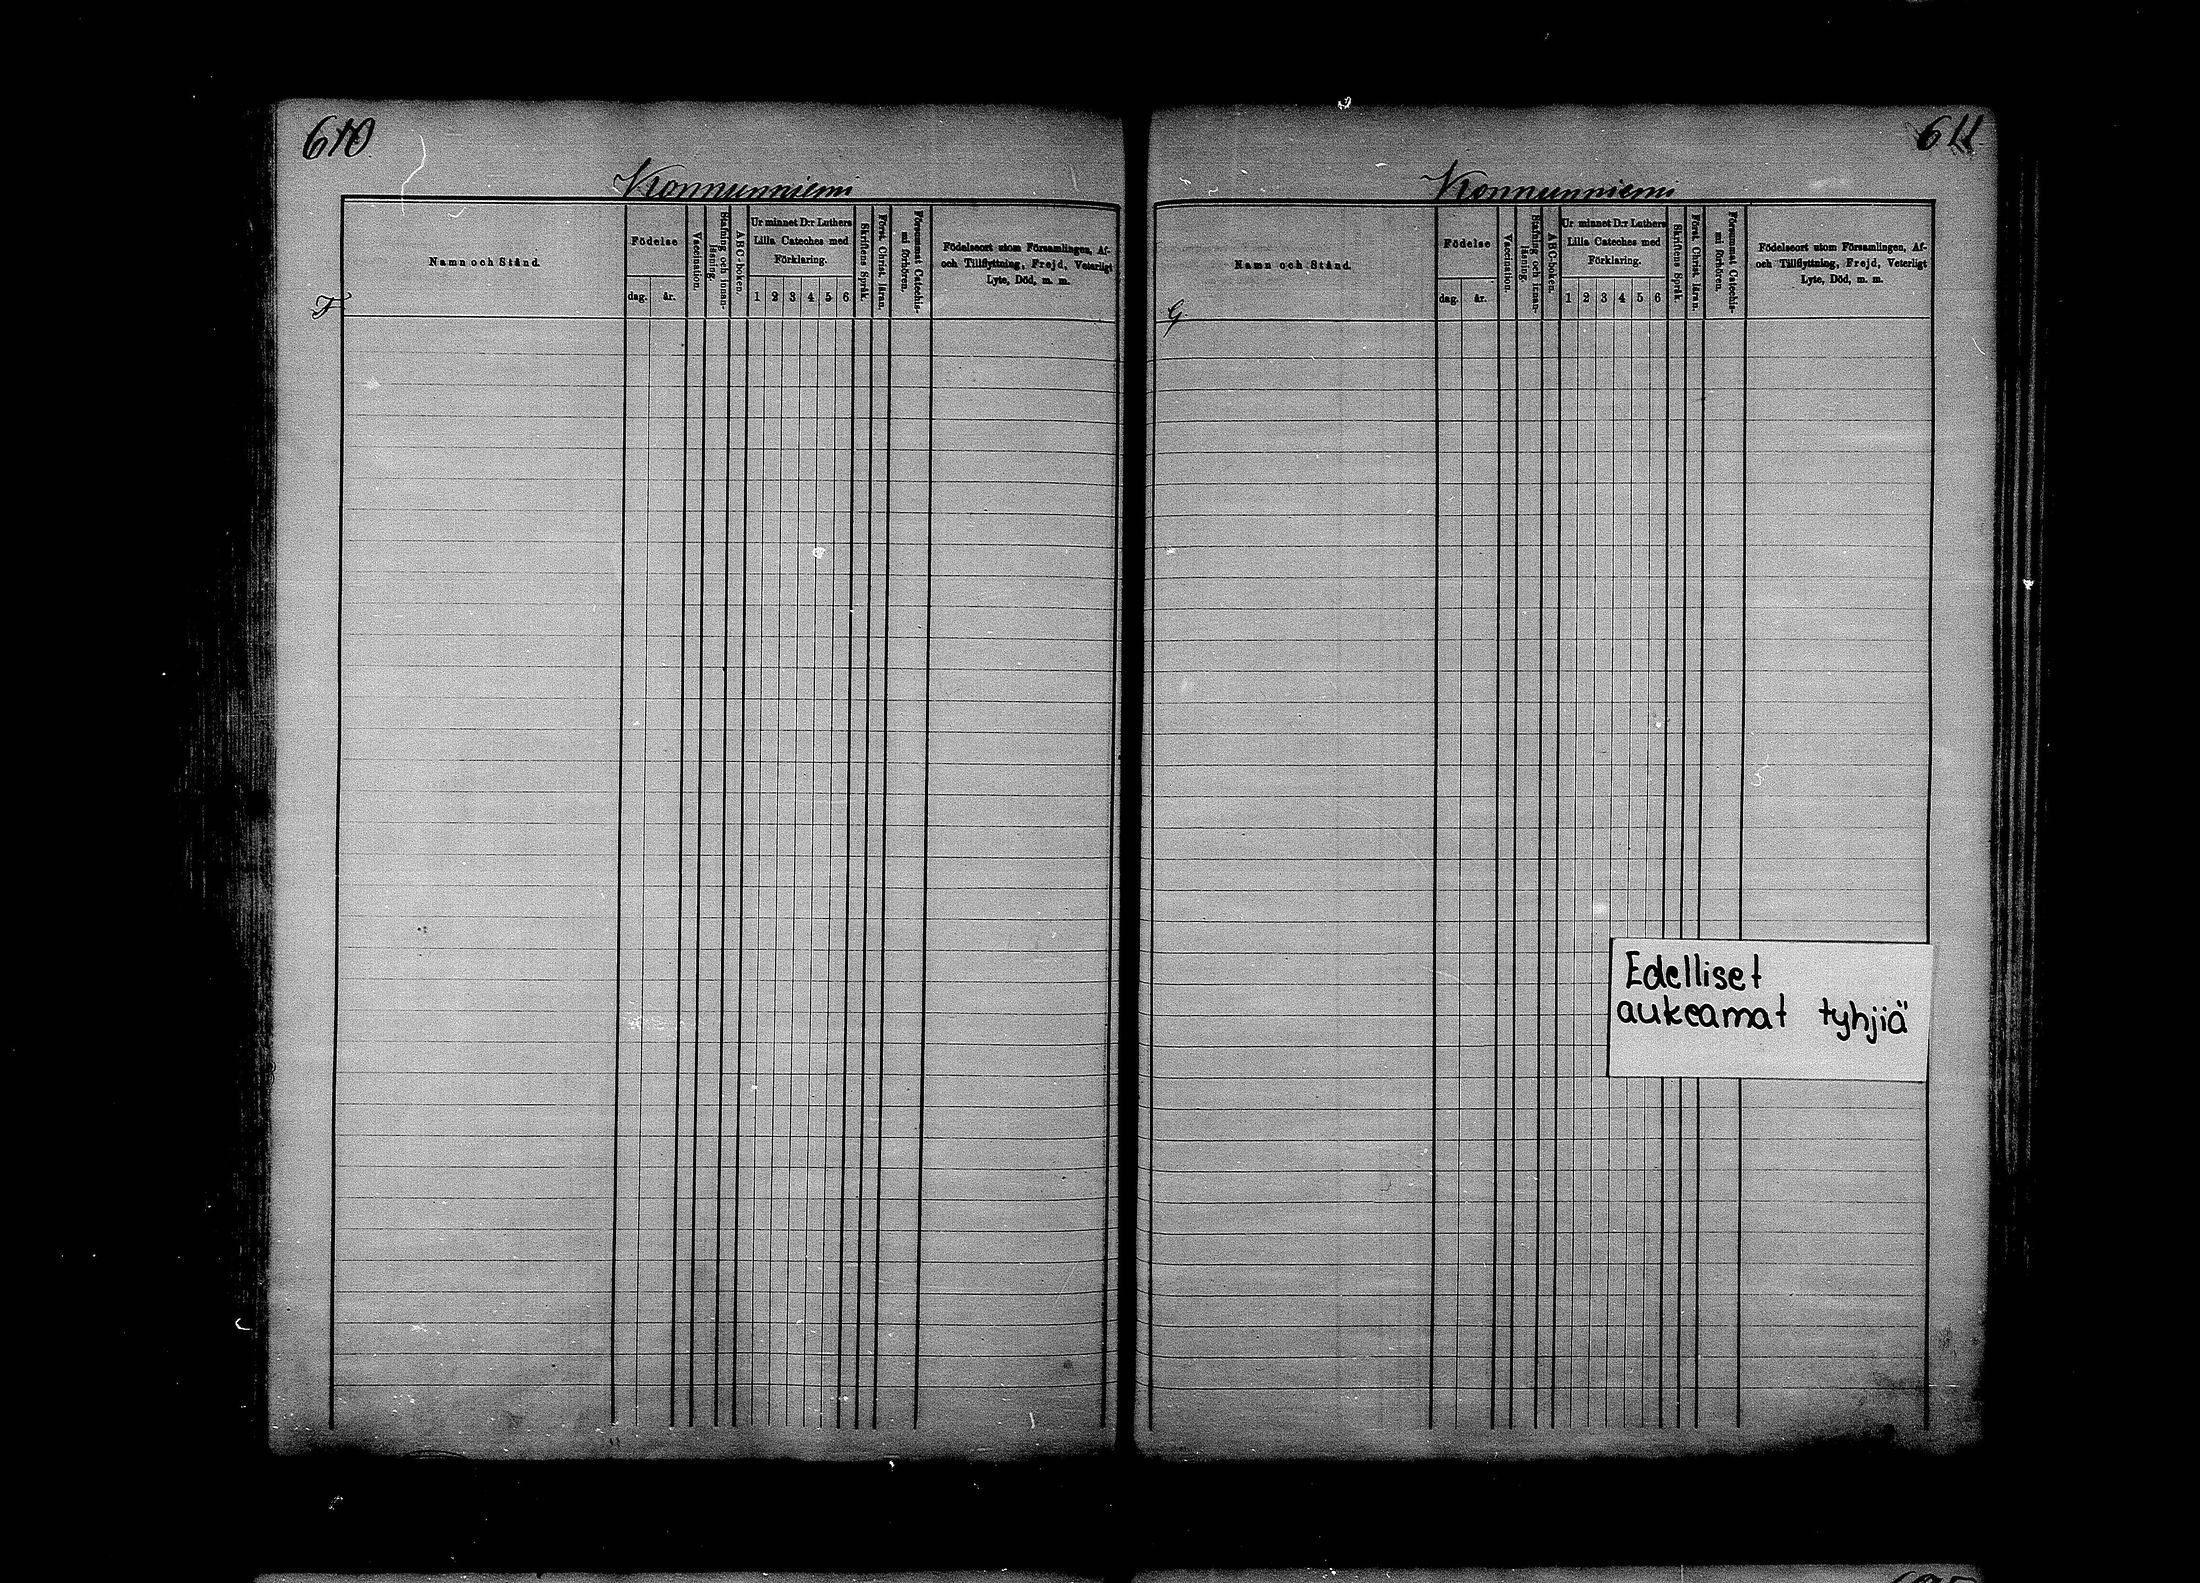 610
Konnunniemi
Namn och Stånd.
Födelse
dag. år.
Vaccination.
Stafning och innan-
läsning.
ABC-boken.
Ur minnet D:r Luthers
Lilla Cateches med
Förklaring.
1 2 3 4 5 6
Skriftens Språk.
Först. Christ. läran.
Försummat Catechis-
mi förhören.
Födelseort utom Församlingen, Af-
och Tillflyttning, Frejd, Veterligt
Lyte, Död, m. m.
F
611
Konnunniemi
Namn och Stånd.
Födelse
dag. år.
Vaccination.
Stafning och innan-
läsning.
ABC-boken.
Ur minnet D:r Luthers
Lilla Cateches med
Förklaring.
1 2 3 4 5 6
Skriftens Språk.
Först. Christ. läran.
Försummat Catechis-
mi förhören.
Födelseort utom Församlingen, Af-
och Tillflyttning, Frejd, Veterligt
Lyte, Död, m. m.
G.
Edelliset
aukeamat tyhjiä